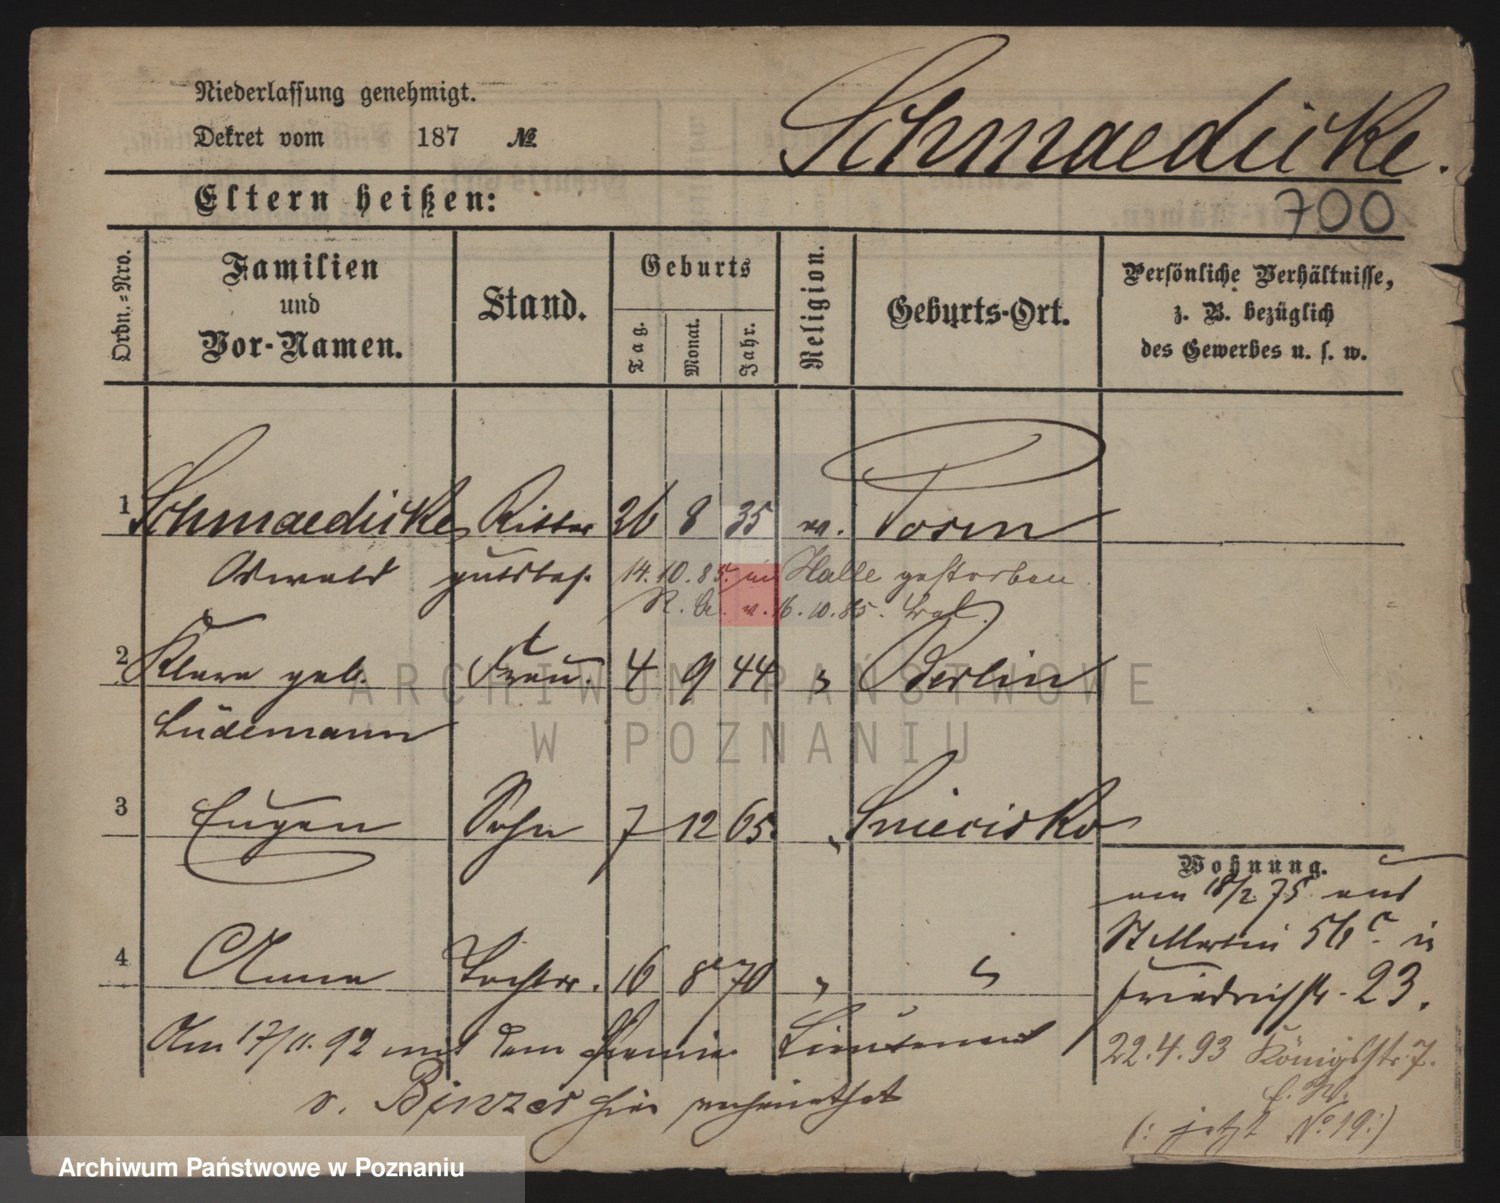 Niederlassung genehmigt.
Dekret vom 187 №
Schmaedicke.
700
Eltern heißen:
Ordn.-Nro.
Familien
und
Vor-Namen.
Stand.
Geburts
Tag.
Monat.
Jahr.
Religion.
Geburts-Ort.
Persönliche Verhältnisse,
z. B. bezüglich
des Gewerbes u. s. w.
1 Schmaedicke Ritter 26 8 35 ev. Posen
Oswald gutsbes. 14.10.85. in Halle gestorben
v. 16.10.85.
2 Klara geb. Frau. 4 9 44 " Berlin
Lüdemann
3 Eugen Sohn 7 12 65. " Sniecisko
4 Anna Tochter. 16 8 70 " "
Am 17/11. 92 mit dem Premier Lieutenant
v. Binzer hier verheirathet
Wohnung.
am 18/2 75 aus
St Martin 56c. in
Friedrichstr. 23.
22.4.93 Königsstr. 7.
(: jetzt No 19:)
ARCHIWUM PAŃSTWOWE
W POZNANIU
Archiwum Państwowe w Poznaniu